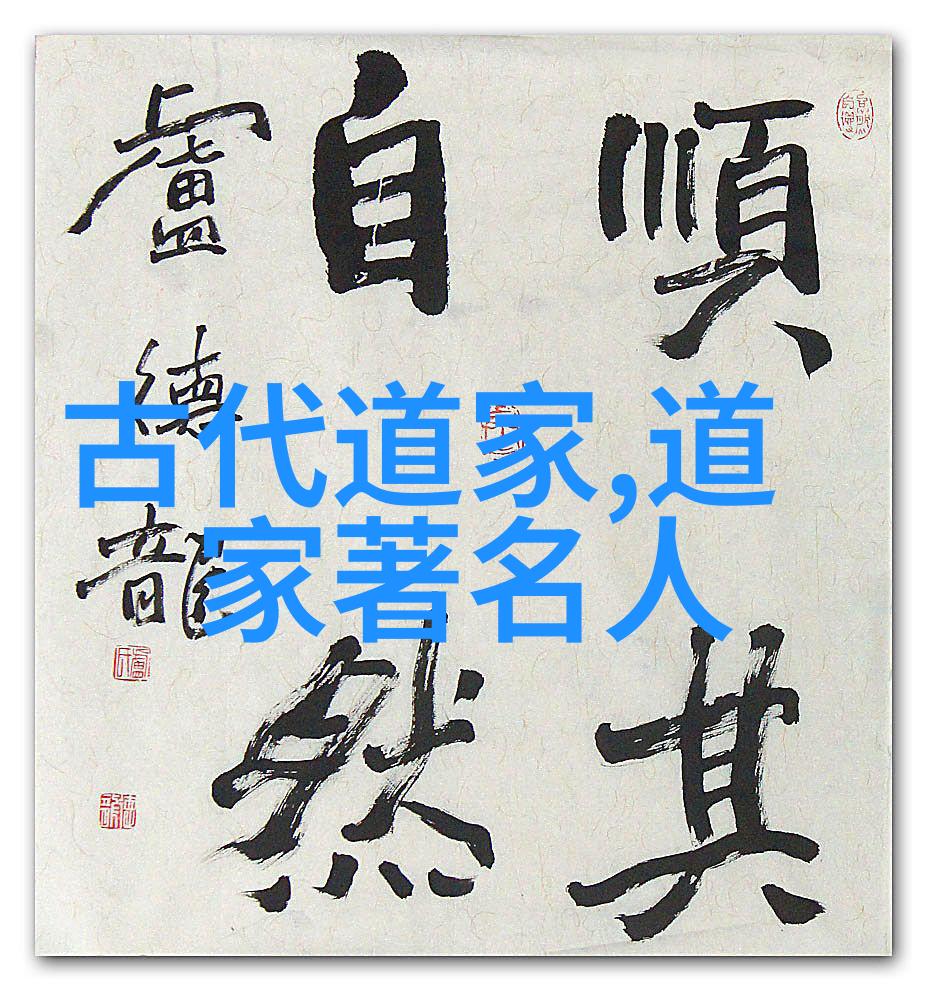 順其
自然
盧德龍
古代道家,道
家著名人